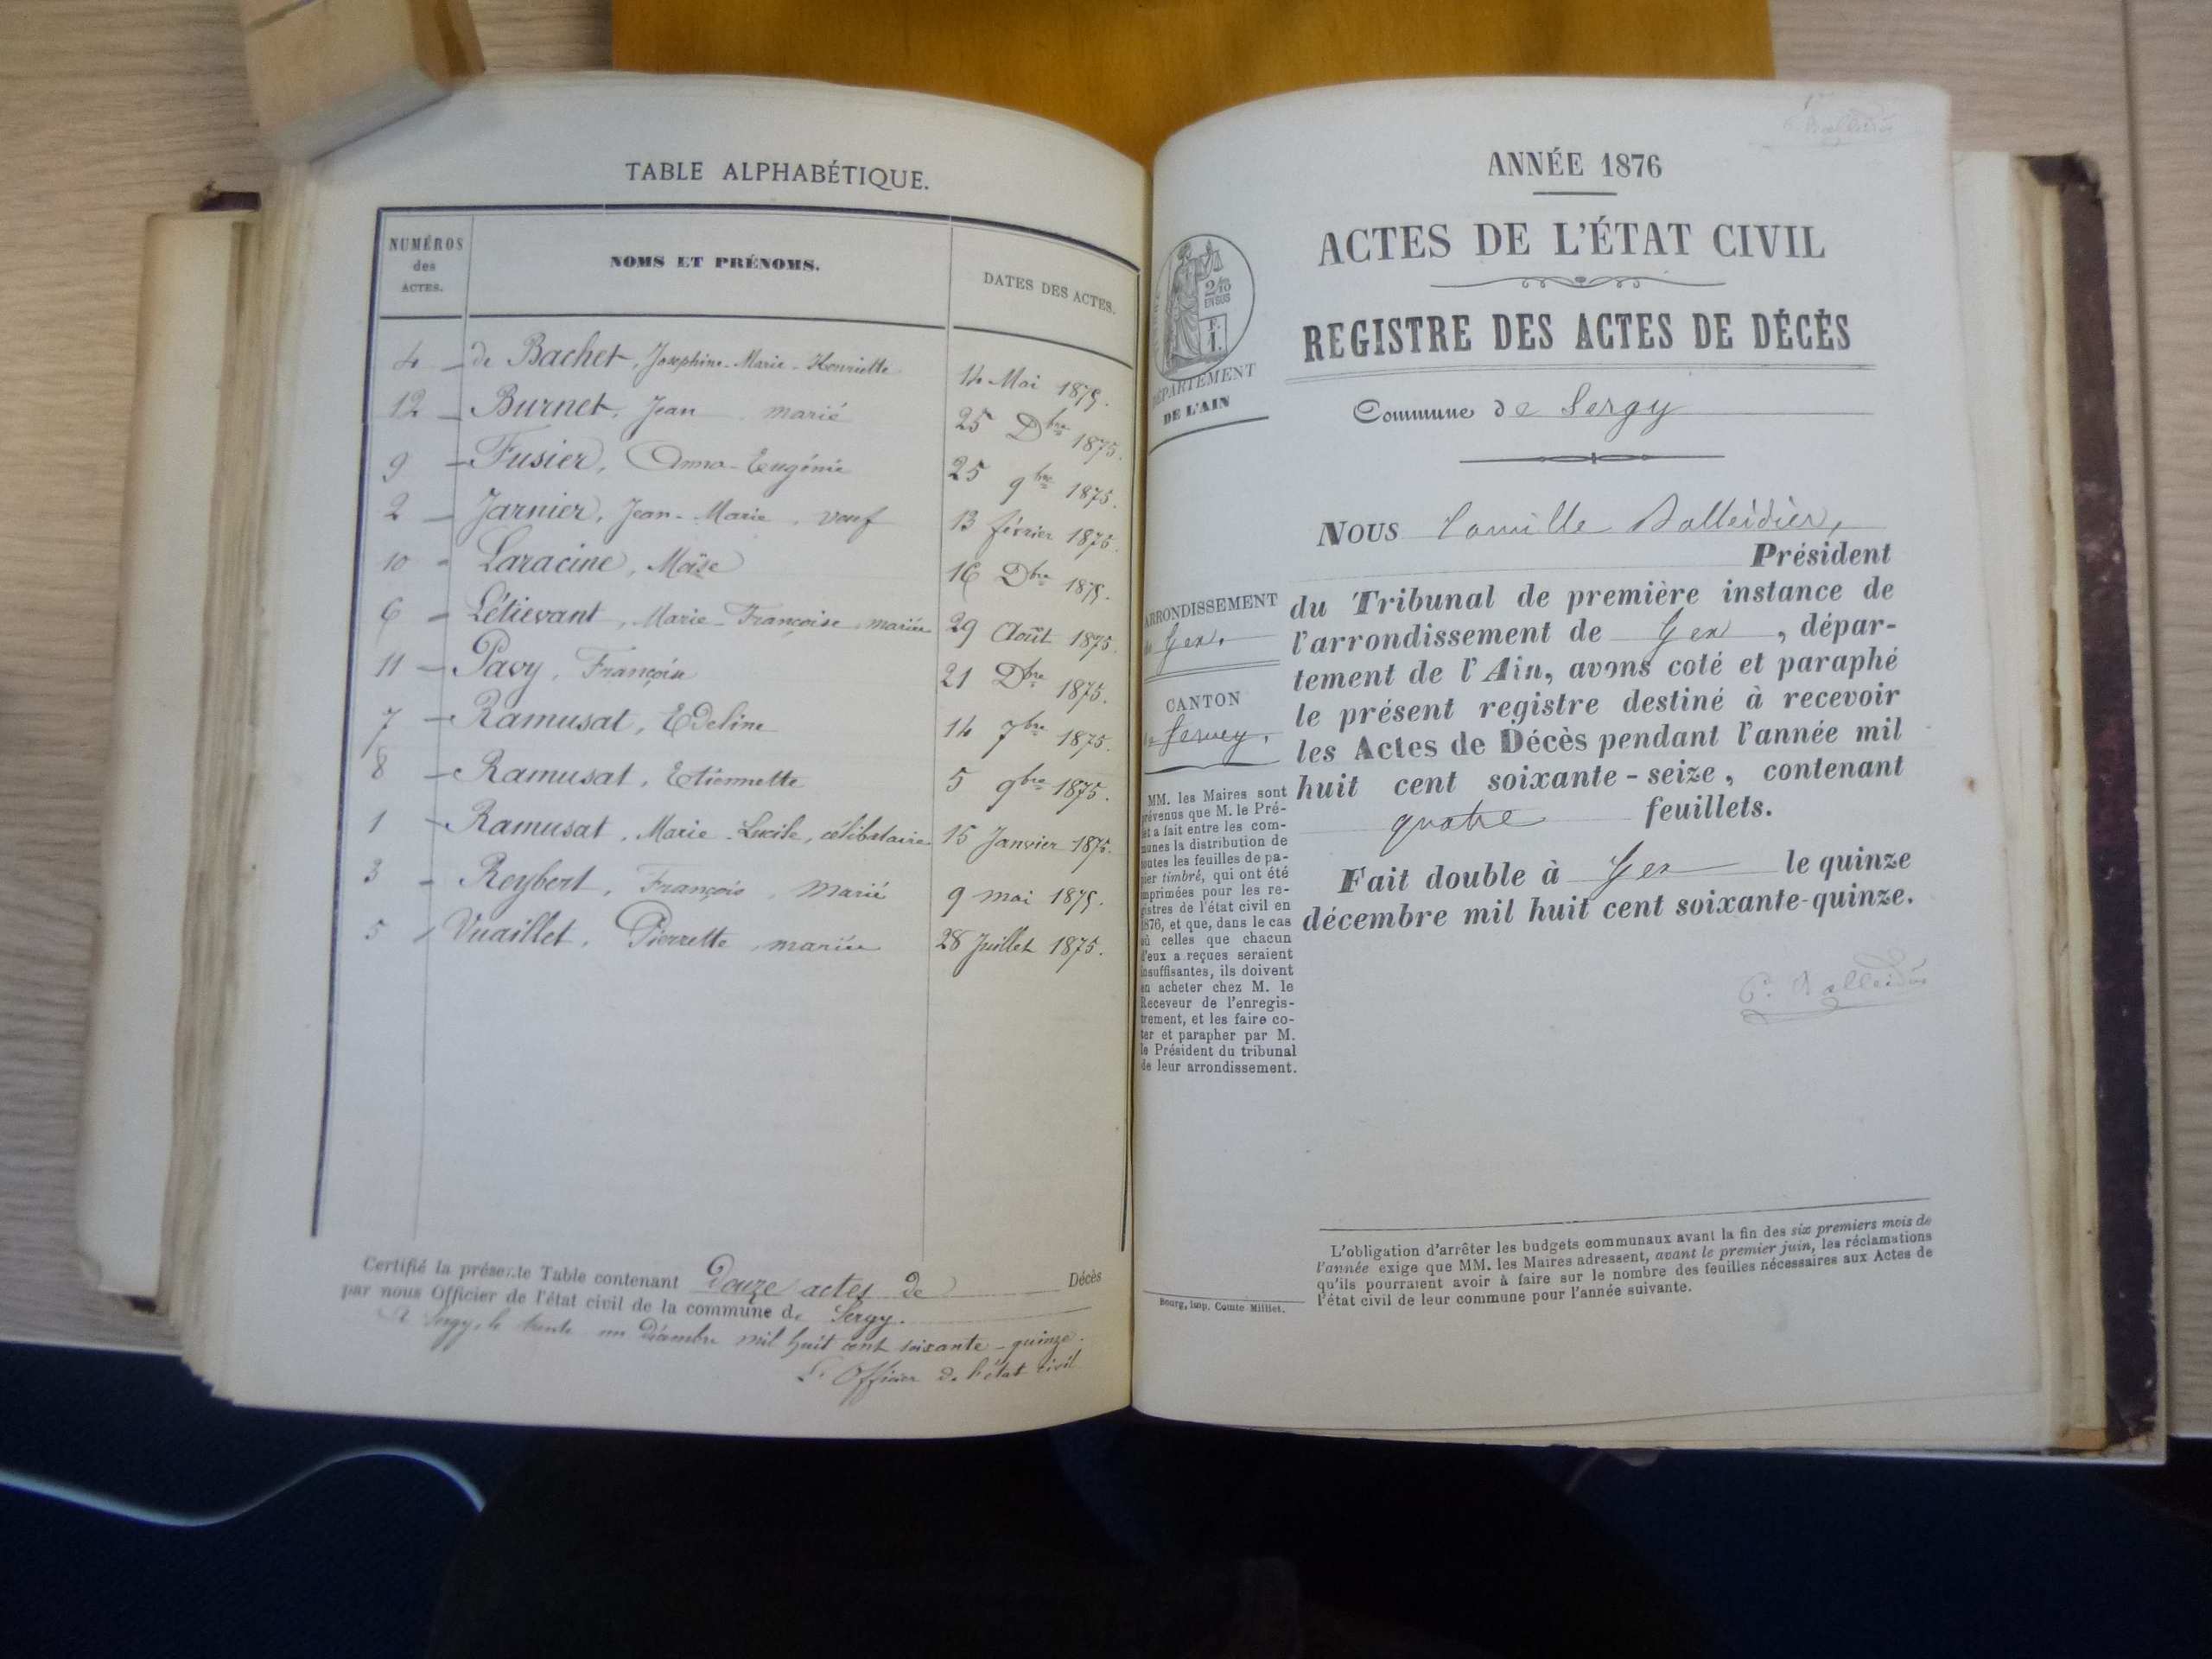 TABLE ALPHABÉTIQUE.
NUMÉROS
des
ACTES.
NOMS ET PRÉNOMS.
DATES DES ACTES.
4 — de Bachet, Josephine-Marie-Henriette 14 Mai 1875.
12 — Burnet, Jean, marié 25 Dbre 1875.
9 — Fusier, Anna-Eugénie 25 9bre 1875.
2 — Jarnier, Jean-Marie, veuf 13 février 1875.
10 - Laracine, Moïse 16 Dbre 1875.
6 — Létievant, Marie-Françoise, mariée 29 Août 1875.
11 — Pavy, François 21 Dbre 1875.
7 — Ramusat, Edeline 14 7bre 1875.
8 — Ramusat, Etiennette 5 9bre 1875.
1 — Ramusat, Marie-Lucile, célibataire 15 Janvier 1875.
3 - Reybert, François, marié 9 mai 1875.
5 Vuaillet, Pierrette, mariée 28 Juillet 1875.
Certifié la présente Table contenant Douze actes de Décès
par nous Officier de l'état civil de la commune de Sergy.
A Sergy, le trente un Décembre mil huit cent soixante-quinze.
L'Officier de l'état civil
ANNÉE 1876
ACTES DE L'ÉTAT CIVIL
REGISTRE DES ACTES DE DÉCÈS
2/10
EN SUS
F.
1.
DÉPARTEMENT
DE L'AIN
Commune de Sergy
NOUS Camille Dalleidier,
Président
du Tribunal de première instance de
l'arrondissement de Gex, dépar-
tement de l'Ain, avons coté et paraphé
le présent registre destiné à recevoir
les Actes de Décès pendant l'année mil
huit cent soixante-seize, contenant
quatre feuillets.
Fait double à Gex le quinze
décembre mil huit cent soixante-quinze.
ARRONDISSEMENT
de Gex.
CANTON
MM. les Maires sont
prévenus que M. le Pré-
fet a fait entre les com-
munes la distribution de
toutes les feuilles de pa-
pier timbré, qui ont été
imprimées pour les re-
gistres de l'état civil en
1876, et que, dans le cas
où celles que chacun
d'eux a reçues seraient
insuffisantes, ils doivent
en acheter chez M. le
Receveur de l'enregis-
trement, et les faire co-
ter et parapher par M.
le Président du tribunal
de leur arrondissement.
L'obligation d'arrêter les budgets communaux avant la fin des six premiers mois de
l'année exige que MM. les Maires adressent, avant le premier juin, les réclamations
qu'ils pourraient avoir à faire sur le nombre des feuilles nécessaires aux Actes de
l'état civil de leur commune pour l'année suivante.
Bourg, imp. Comte-Milliet.